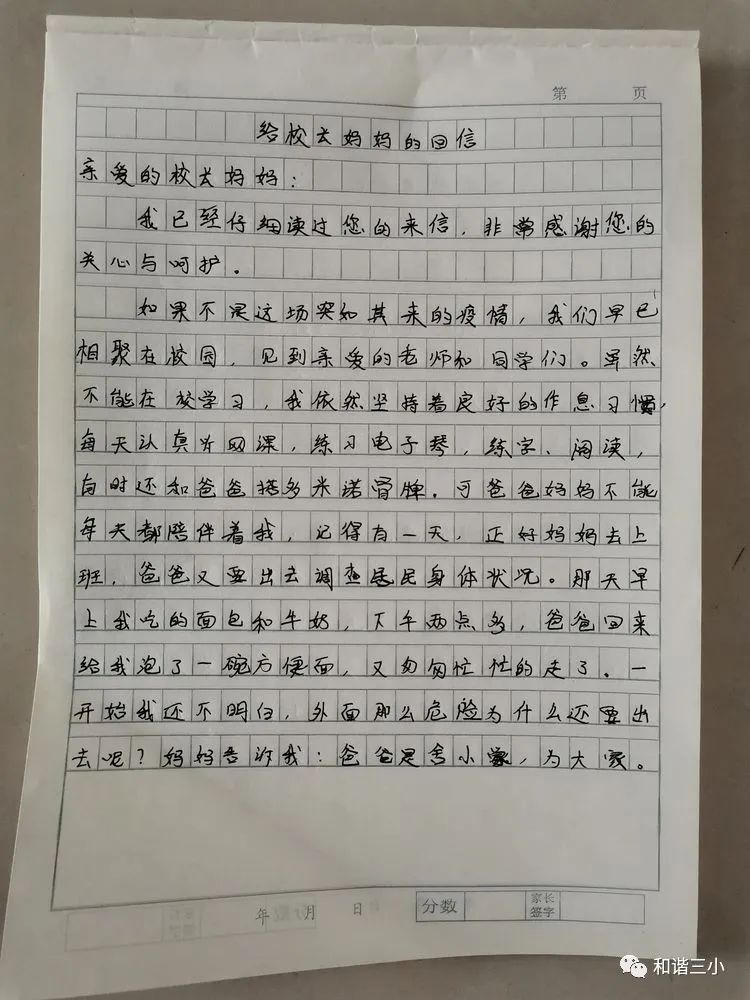 第 页
给校长妈妈的回信
亲爱的校长妈妈：
我已经仔细读过您的来信，非常感谢您的
关心与呵护。
如果不是这场突如其来的疫情，我们早已
相聚在校园，见到亲爱的老师和同学们。虽然
不能在校学习，我依然坚持着良好的作息习惯，
每天认真听网课，练习电子琴，练字、阅读，
有时还和爸爸搭多米诺骨牌。可爸爸妈妈不能
每天都陪伴着我，记得有一天，正好妈妈去上
班，爸爸又要出去调查居民身体状况。那天早
上我吃的面包和牛奶，下午两点多，爸爸回来
给我泡了一碗方便面，又匆匆忙忙的走了。一
开始我还不明白，外面那么危险为什么还要出
去呢？妈妈告诉我：爸爸是舍小家，为大家。
年 月 日 分数 家长签字
和谐三小